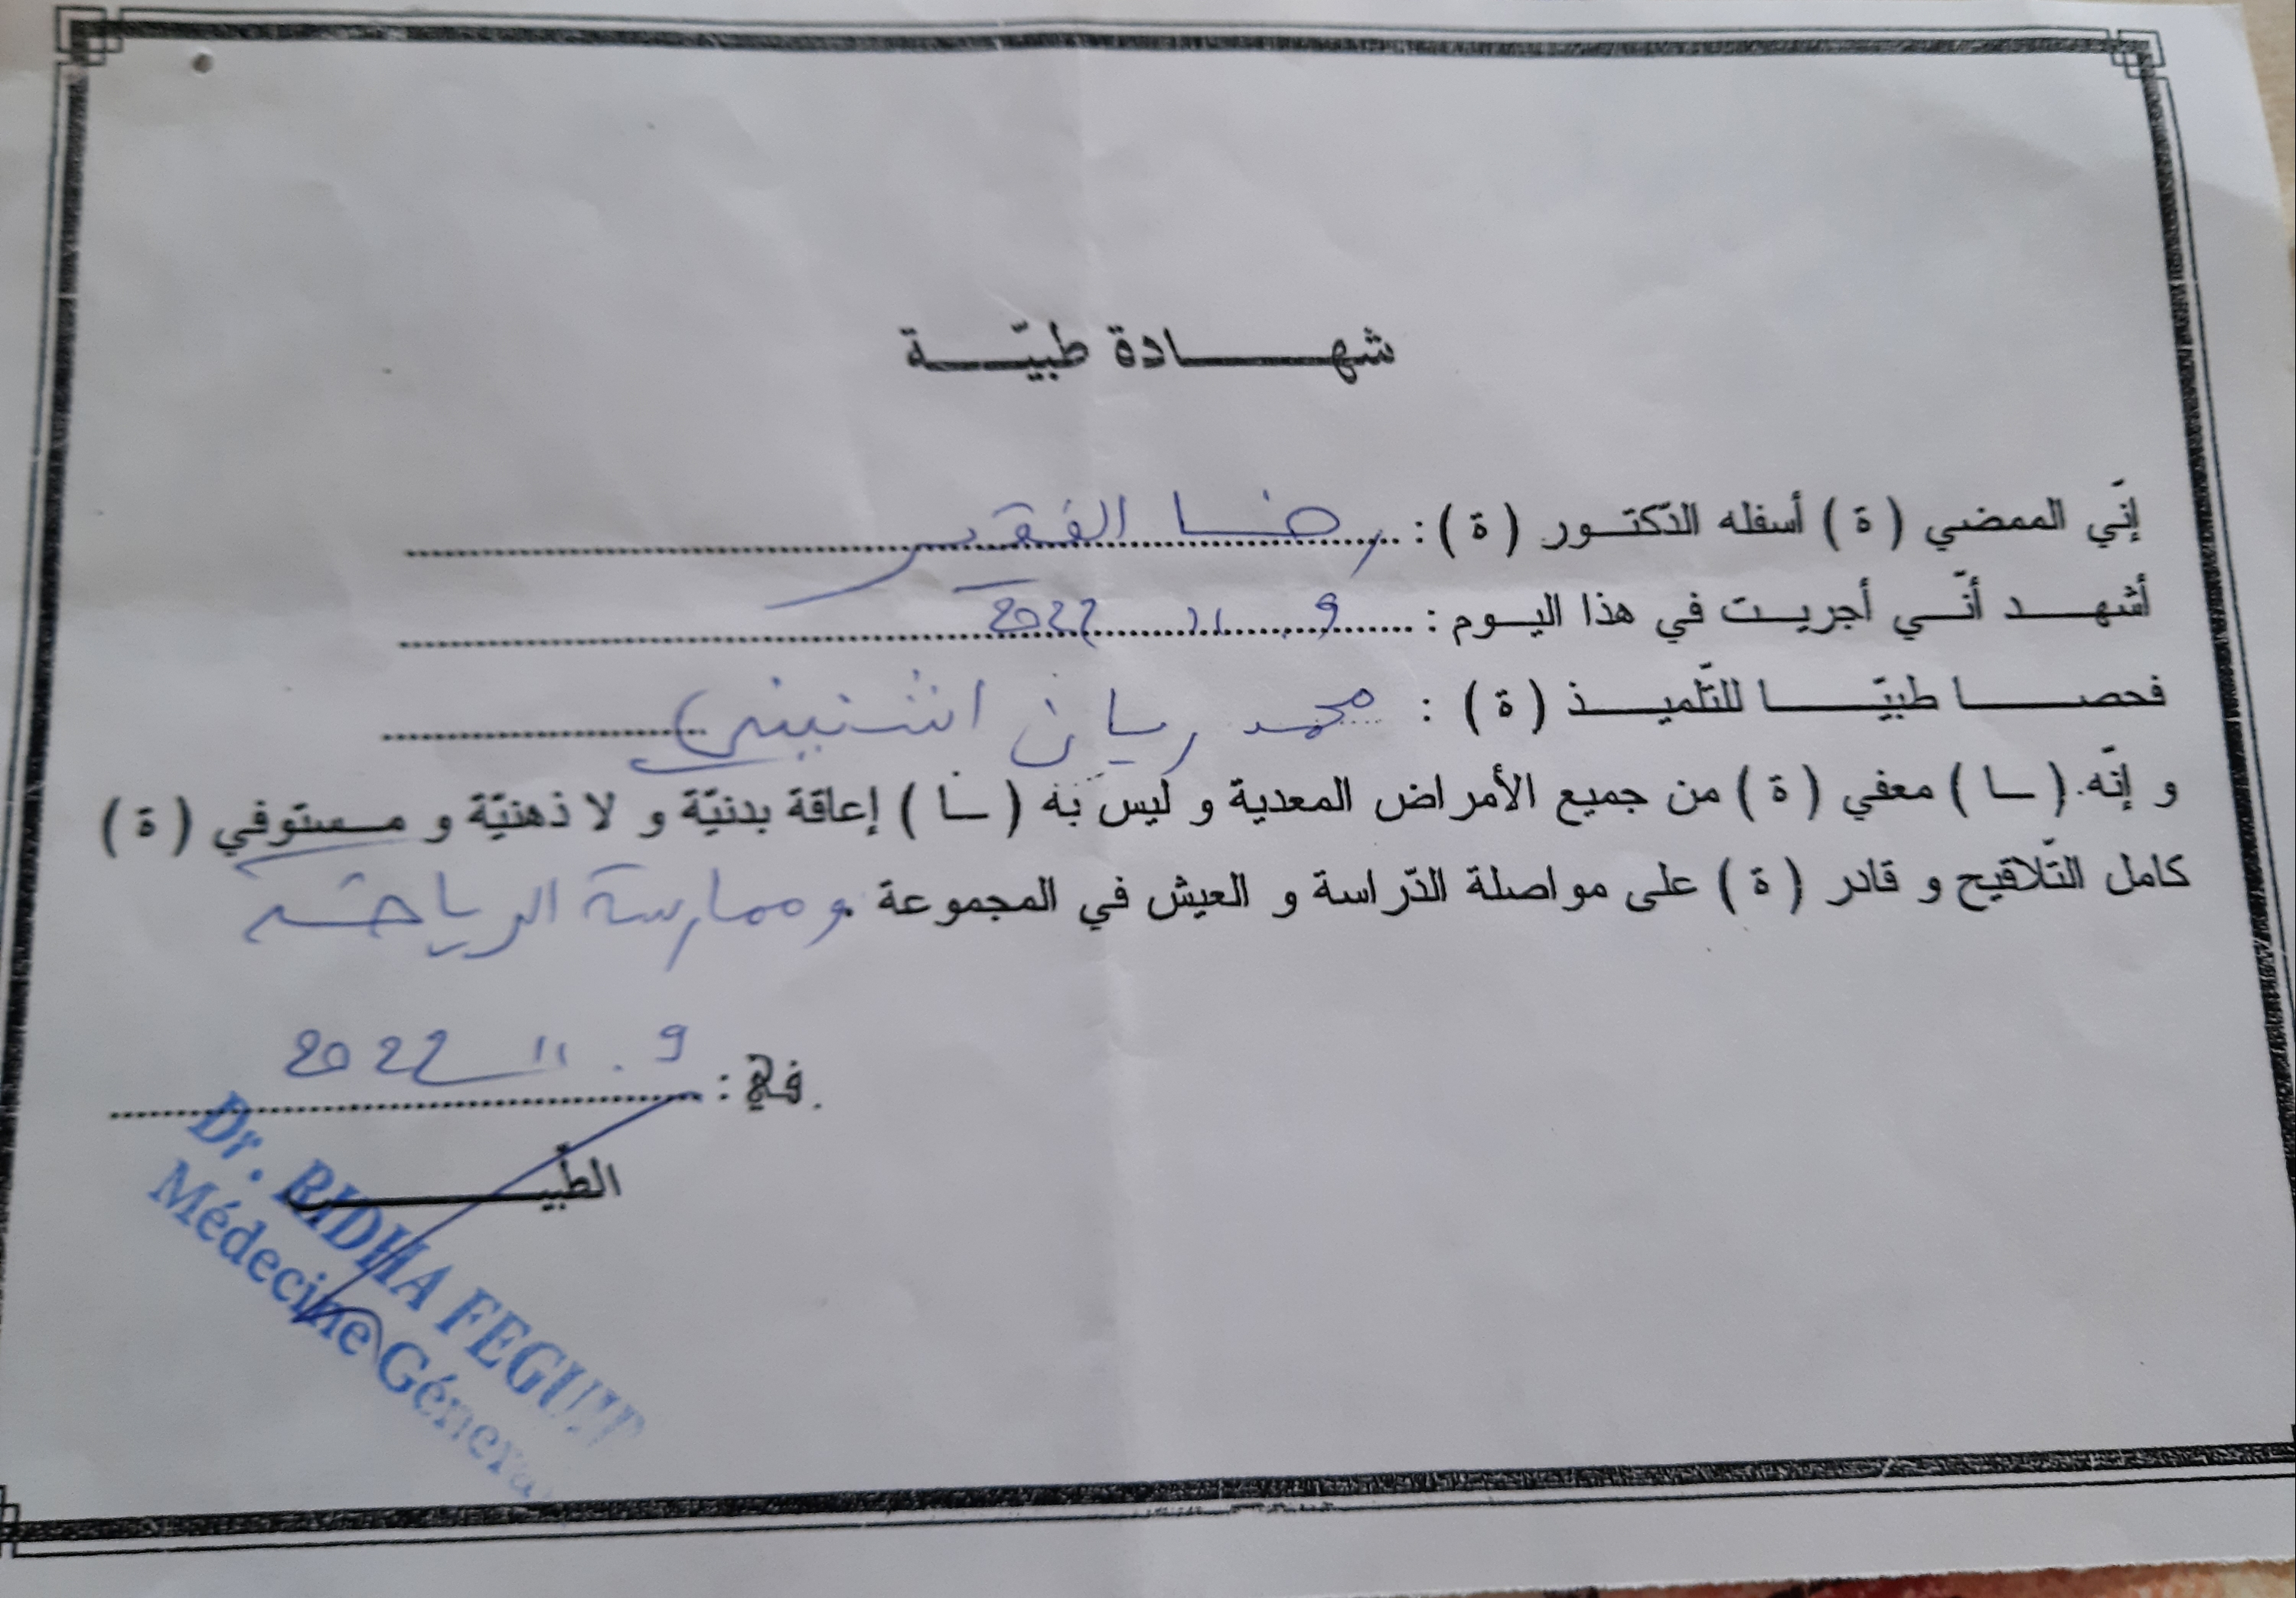 شهادة طبيّة
إنّي الممضي ( ة ) أسفله الدّكتور ( ة ) : رضا الفقير
أشهد أنّي أجريت في هذا اليوم : 9 11 2022
فحصا طبيّا للتّلميذ ( ة ) : محمد ريان
و إنّه ( ـا ) معفي ( ة ) من جميع الأمراض المعدية و ليس به ( ـا ) إعاقة بدنيّة و لا ذهنيّة و مستوفي ( ة )
كامل التّلاقيح و قادر ( ة ) على مواصلة الدّراسة و العيش في المجموعة . وممارسة الرياضة
في : 9 . 11 2022
الطّبيـ
Dr. RIDHA
Médecine